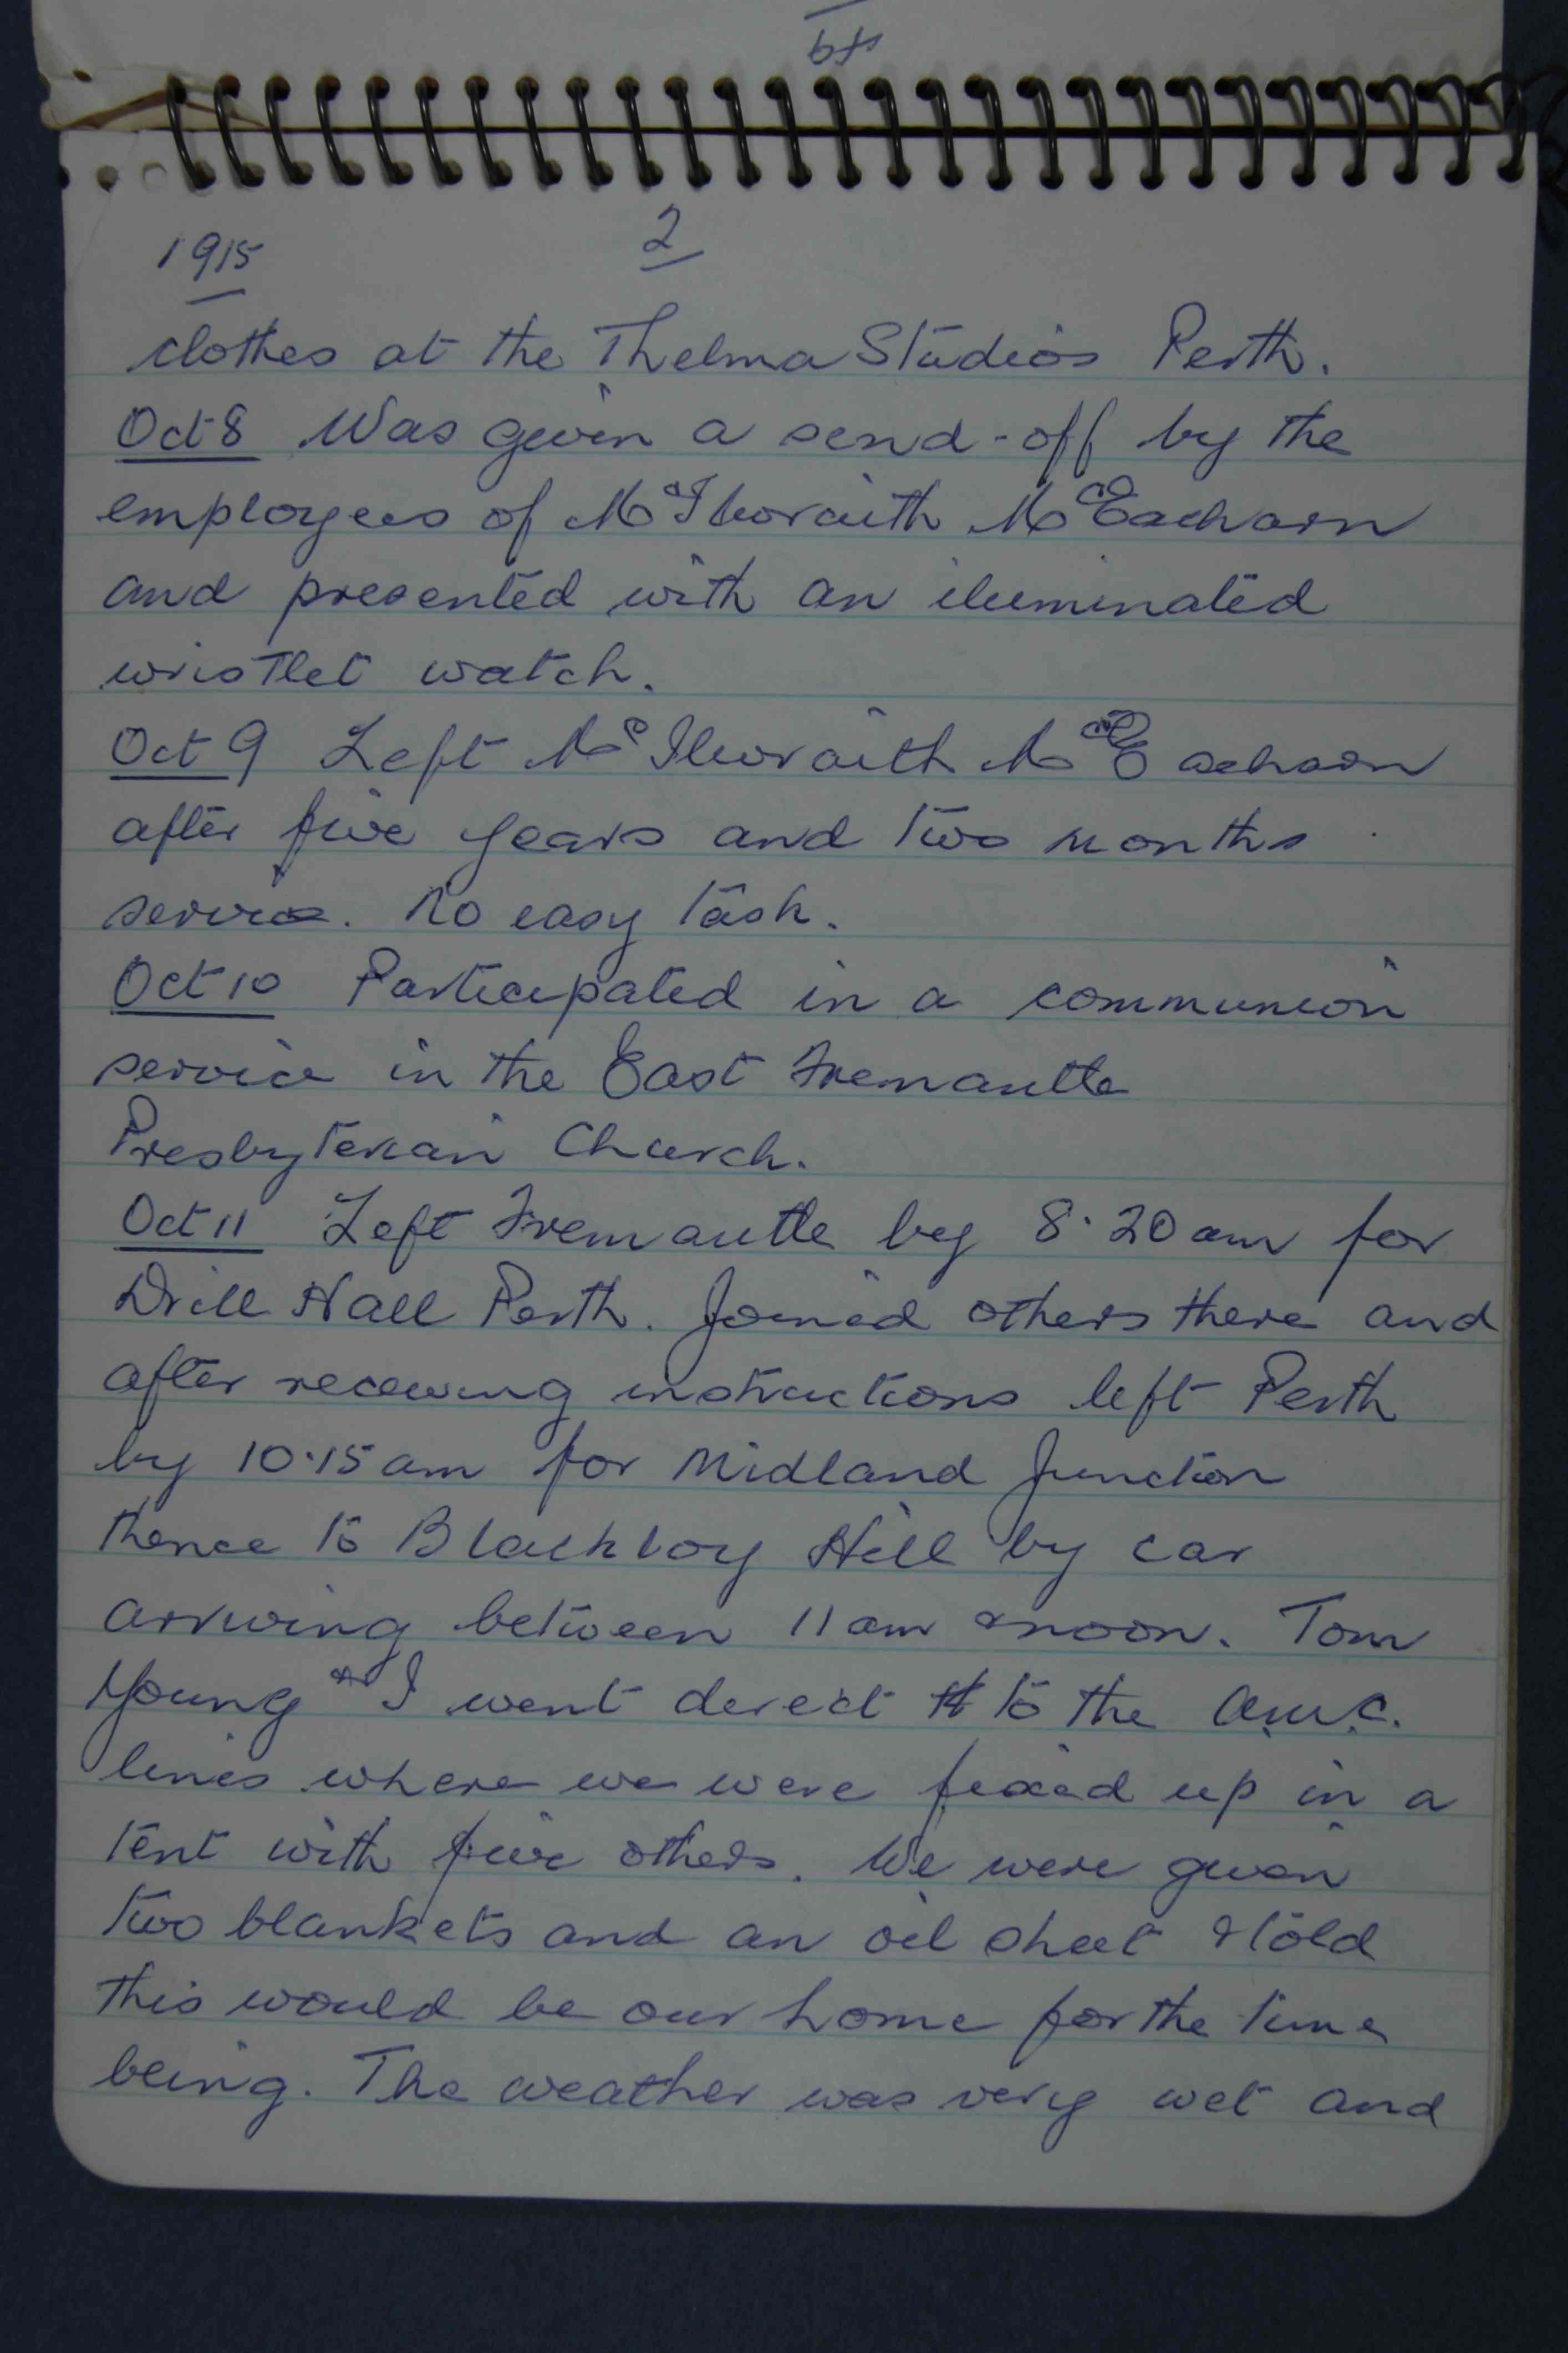 1915 2
clothes at the Thelma Studios Perth.
Oct 8 Was given a send-off by the
employees of McIlwraith McEacharn
and presented with an iluminated
wristlet watch.
Oct 9 Left McIlwraith McEacharn
after five years and two months
service. No easy task.
Oct 10 Participated in a communion
service in the East Fremantle
Presbyterian Church.
Oct 11 Left Fremantle by 8.20 am for
Drill Hall Perth. Joined others there and
after receiving instructions left Perth
by 10.15 am for Midland Junction
thence to Blackboy Hill by car
arriving between 11 am & noon. Tom
Young & I went direct to the A.M.C.
lines where we were fixed up in a
tent with five others. We were given
two blankets and an oil sheet & told
this would be our home for the time
being. The weather was very wet and